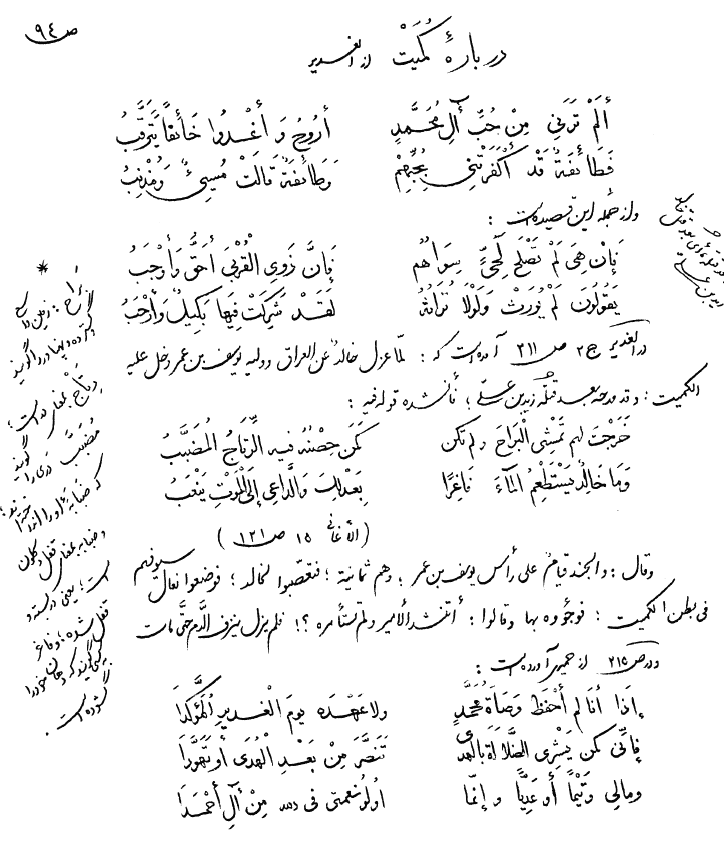 ص ٩٤
دربارهٔ كُمَيْت از الغدير
أَلَمْ تَرَنِي مِنْ حُبِّ آلِ مُحَمَّدٍ أَرُوحُ وَ أَغْدُوا خَائِفاً يَتَرَقَّبُ
فَطَائِفَةٌ قَدْ أَكْفَرَتْنِي بِحُبِّهِمْ وَ طَائِفَةٌ قَالَتْ مُسِيئٌ وَ مُذْنِبُ
و از جمله اين قصيده است :
فَإِنْ هِيَ لَمْ تَصْلَحْ لِحَيٍّ سِوَاهُمُ فَإِنَّ ذَوِي الْقُرْبَى أَحَقُّ وَ أَوْجَبُ
يَقُولُونَ لَمْ يُورَثْ وَلَوْلَا تُرَاثُهُ لَقَدْ شَرِكَتْ فِيهَا بَكِيلٌ وَ أَرْحَبُ
در الغدير ج ٢ ص ٢١١ آمده است كه : لمّا عزل خالدٌ عن العراق ووليه يوسف بن عمر دخل عليه
الكميت ؛ و قد مدحه بعد قتله زيد بن علىّ ؛ فأنشده قوله فيه :
خَرَجْتَ لهم تَمْشِى الْبَرَاحَ و لم تكن كَمَن حِصْنُهُ فيه الرِّتَاجُ الْمُضَبَّبُ
وَمَا خَالِدٌ يَسْتَطْعِمُ الْمَاءَ فَاغِرًا بِعَدْلِكَ وَالدَّاعِى إِلَى الْمَوْتِ يَنْعَبُ
(الأغانى ١٥ ص ١٢١)
وقال : والجند قيام على رأس يوسف بن عمر ؛ و هم ثمانية ؛ فتعصّبوا لخالد ؛ فوضعوا نعال سيوفهم
فى بطن الكميت ؛ فوجؤوه بها وقالوا : أتنشد الأمير ولم تستأمره ؟! فلم يزل ينزف الدّم حتّى مات
و در ص ٢١٥ از حميرى آورده است :
إِذَا أَنَا لم أَحْفَظْ وَصَاةَ مُحَمَّدٍ ولا عَهْدَهُ يومَ الْغَدِيرِ الْمُؤَكَّدَا
فَإِنِّى كَمَن يَشْرِى الضَّلَالَةَ بِالْهُدَى تَنَصَّرَ مِنْ بَعْدِ الْهُدَى أَوْ تَهَوَّدَا
ومالى وَتَيْمًا أَو عَدِيًّا و إنّما أُولُو نعمتى فى الله مِنْ آلِ أَحْمَدَا
*
بَرَاح : زمين
گسترده و پهناور را گويند
رِتَاج بمعنى در است ؛
مُضَبَّبْ درى را گويند
كه ضبابه او را انداخته‌اند ؛
و ضبابه بمعنى قفل و كلون
است ؛ يعنى در بسته و
قفل شده ؛ و فاغر
كسى گويند كه دهان خود را
گشوده است .